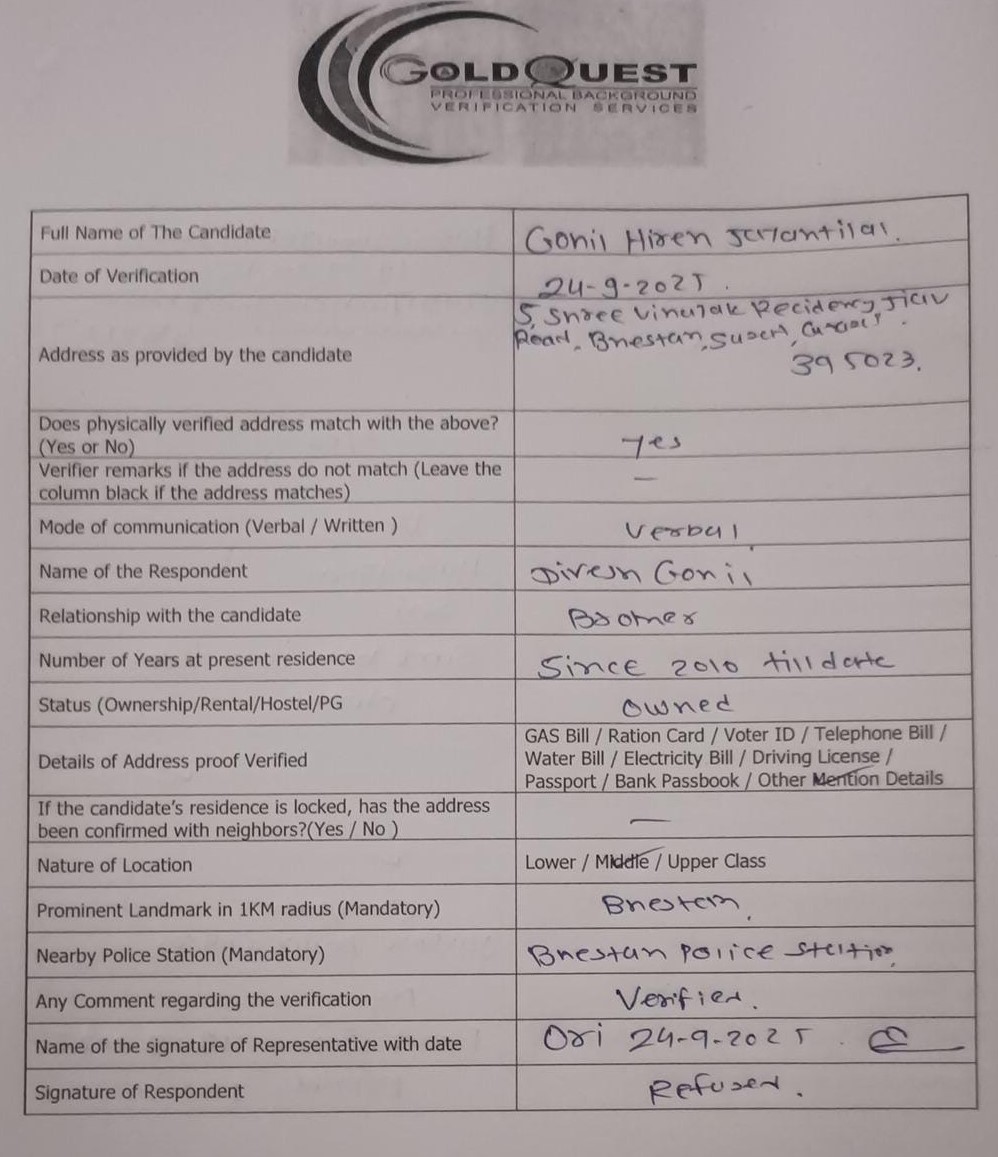 GOLDQUEST
PROFESSIONAL BACKGROUND
VERIFICATION SERVICES
Full Name of The Candidate
Gohil Hiren Jayantilal.
Date of Verification
24-9-2025.
Address as provided by the candidate
5, Shree Vinayak Recidency, Jiav
Road, Bhestan, Surat, Gujarat.
395023.
Does physically verified address match with the above?
(Yes or No)
yes
Verifier remarks if the address do not match (Leave the
column black if the address matches)
—
Mode of communication (Verbal / Written )
Verbal
Name of the Respondent
Divesh Gohil
Relationship with the candidate
Brother
Number of Years at present residence
Since 2010 till date
Status (Ownership/Rental/Hostel/PG
Owned
Details of Address proof Verified
GAS Bill / Ration Card / Voter ID / Telephone Bill /
Water Bill / Electricity Bill / Driving License /
Passport / Bank Passbook / Other Mention Details
If the candidate's residence is locked, has the address
been confirmed with neighbors?(Yes / No )
—
Nature of Location
Lower / Middle / Upper Class
Prominent Landmark in 1KM radius (Mandatory)
Bhestan
Nearby Police Station (Mandatory)
Bhestan Police Station
Any Comment regarding the verification
Verified.
Name of the signature of Representative with date
Ori 24-9-2025.
Signature of Respondent
Refused.